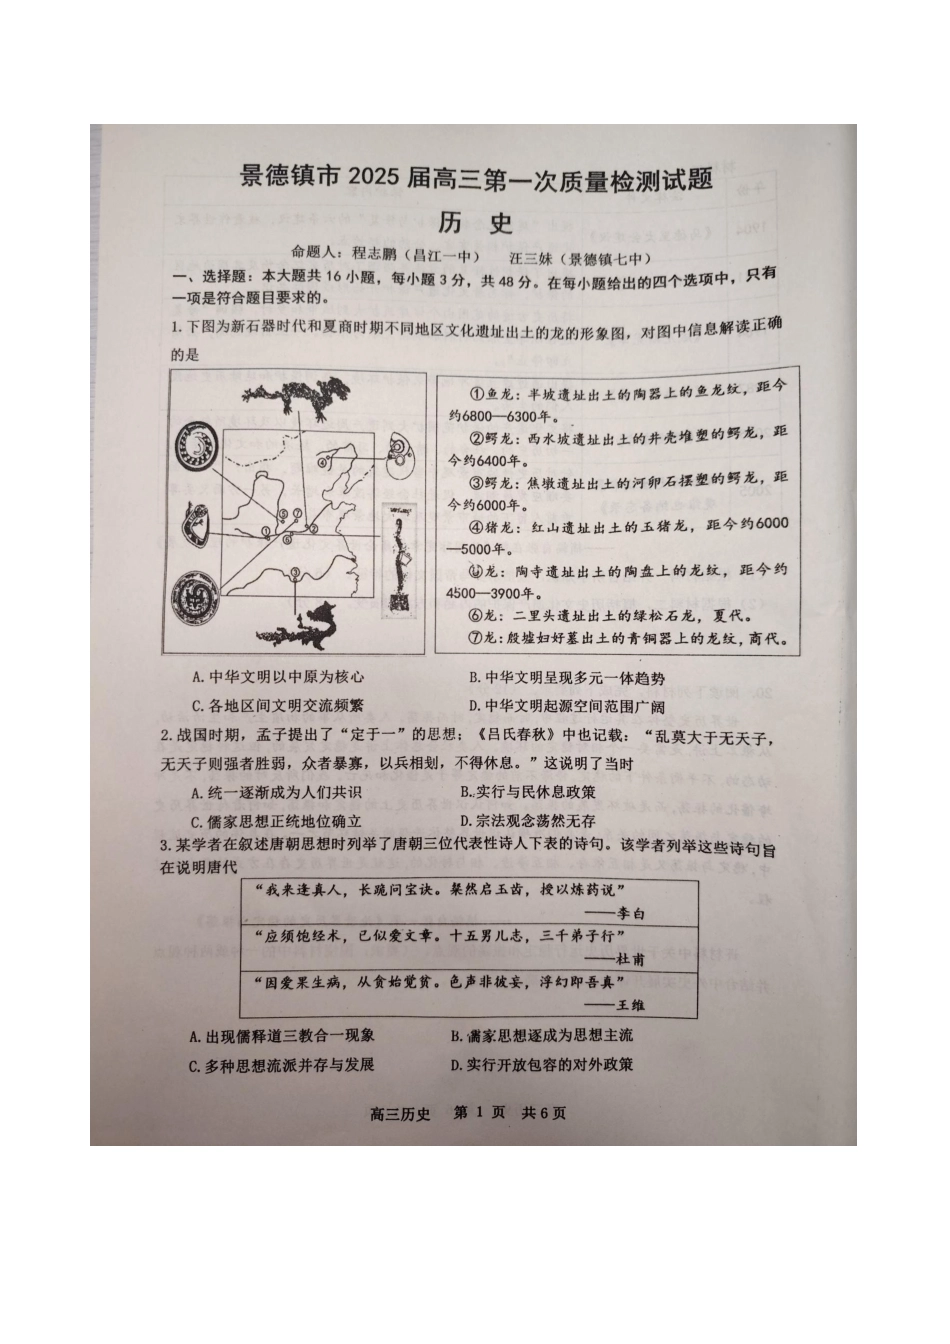 景德镇市 2025 届高三第一次质量检测试题
历 史
命题人：程志鹏（昌江一中） 汪三妹（景德镇七中）
一、选择题：本大题共 16 小题，每小题 3 分，共 48 分。在每小题给出的四个选项中，只有
一项是符合题目要求的。
1.下图为新石器时代和夏商时期不同地区文化遗址出土的龙的形象图，对图中信息解读正确
的是
①鱼龙：半坡遗址出土的陶器上的鱼龙纹，距今
约6800—6300年。
②鳄龙：西水坡遗址出土的蚌壳堆塑的鳄龙，距
今约6400年。
③鳄龙：焦墩遗址出土的河卵石摆塑的鳄龙，距
今约6000年。
④猪龙：红山遗址出土的玉猪龙，距今约6000
—5000年。
⑤龙：陶寺遗址出土的陶盘上的龙纹，距今约
4500—3900年。
⑥龙：二里头遗址出土的绿松石龙，夏代。
⑦龙:殷墟妇好墓出土的青铜器上的龙纹,商代。
A.中华文明以中原为核心 B.中华文明呈现多元一体趋势
C.各地区间文明交流频繁 D.中华文明起源空间范围广阔
2.战国时期，孟子提出了“定于一”的思想；《吕氏春秋》中也记载：“乱莫大于无天子，
无天子则强者胜弱，众者暴寡，以兵相刬，不得休息。”这说明了当时
A.统一逐渐成为人们共识 B.实行与民休息政策
C.儒家思想正统地位确立 D.宗法观念荡然无存
3.某学者在叙述唐朝思想时列举了唐朝三位代表性诗人下表的诗句。该学者列举这些诗句旨
在说明唐代
“我来逢真人，长跪问宝诀。粲然启玉齿，授以炼药说”
——李白
“应须饱经术，已似爱文章。十五男儿志，三千弟子行”
——杜甫
“因爱果生病，从贪始觉贫。色声非彼妄，浮幻即吾真”
——王维
A.出现儒释道三教合一现象 B.儒家思想逐成为思想主流
C.多种思想流派并存与发展 D.实行开放包容的对外政策
高三历史 第 1 页 共 6 页